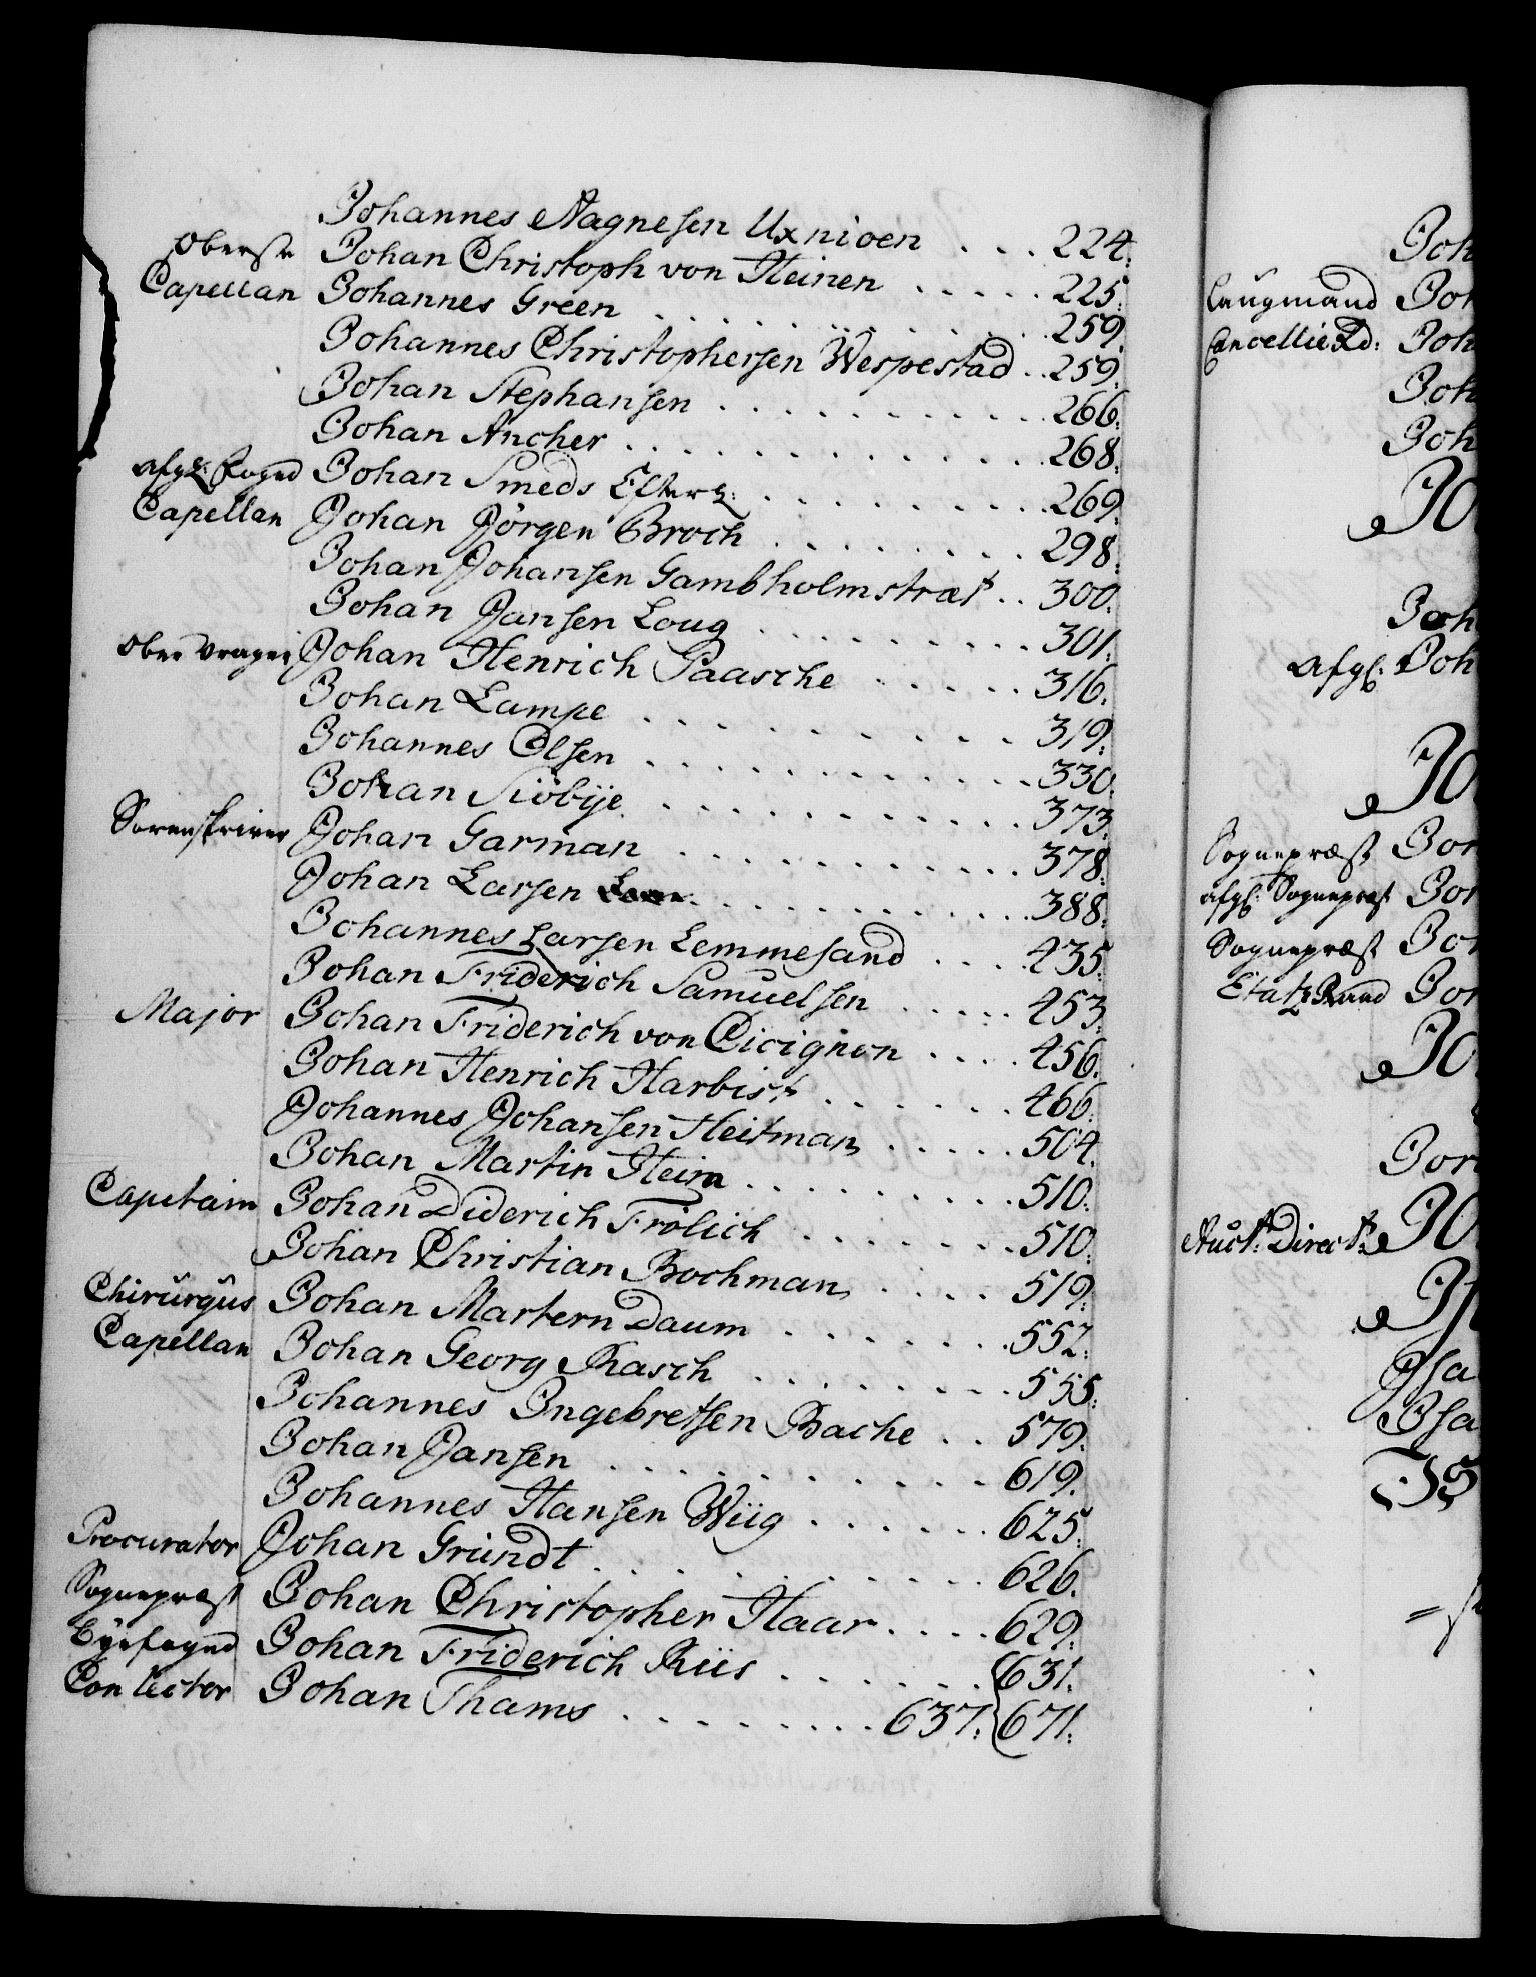 Johannes Magnesen Uxnioen .... 224.
Oberste Johan Christoph von Heinen ..... 225.
Capellan Johannes Green .......... 259.
Johannes Christophersen Wespestad .. 259.
Johan Stephansen .......... 266.
Johan Ancher .......... 268.
afg: Foged Johan Smeds Efterl: .......... 269.
Capellan Johan Jörgen Broch ......... 298.
Johan Johansen Gambholmstræt .. 300.
Johan Jansen Loug ......... 301.
Ober Vrager Johan Henrich Paasche ...... 316.
Johan Lampe .......... 319.
Johannes Olsen .......... 330.
Johan Siöbÿe .......... 373.
Sorenskriver Johan Garman .......... 378.
Johan Larsen .......... 388.
Johannes Larsen Lemmesand .... 435.
Johan Friderich Samuelsen ..... 453.
Major Johan Friderich von Cicignon .... 456.
Johan Henrich Harbist ....... 466.
Johannes Johansen Heitman ..... 504.
Johan Martin Heim ......... 510.
Capitain Johan Diderich Frölich ....... 510.
Johan Christian Bochman .... 519.
Chirurgus Johan Martern Daum ....... 552.
Capellan Johan Georg Rasch ........ 555.
Johannes Ingebretsen Bache .. 579.
Johan Jansen .......... 619.
Johannes Hansen Wiig ...... 625.
Procurator Johan Grundt .......... 626.
Sognepræst Johan Christopher Haar .... 629.
Byefoged Johan Friderich Riis ...... 631.
Con Rector Johan Thams ........ 637. 671.
Joh
Laugmand Joh
CancellieRd: Joh
Joh
Joh
JO
Joh
afg: Joh
JO
Sognepræst Jon
afg: Sognepræst Jon
Sognepræst Jon
EtatzRaad Jon
JO
Jor
Auct: Direct: JO
Isa
Isa